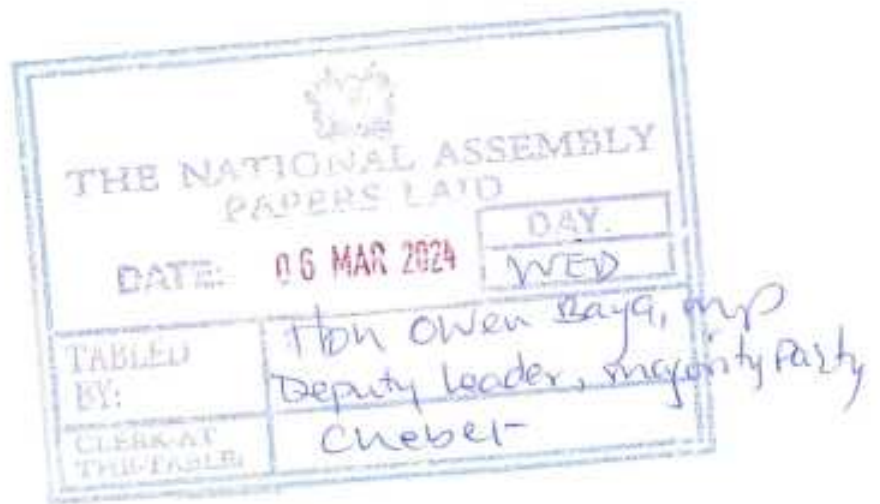 THE NATIONAL ASSEMBLY
PAPERS LAID
DATE: 06 MAR 2024
DAY.
WED
TABLED BY:
Hon Owen Baya, MP
Deputy Leader, Majority Party
CLERK-AT THE-TABLE:
Chebet